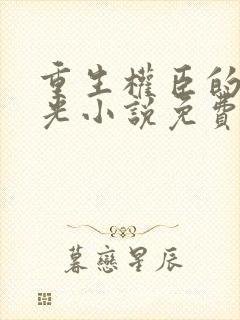 重生權臣的
光小說免費
暮戀星辰